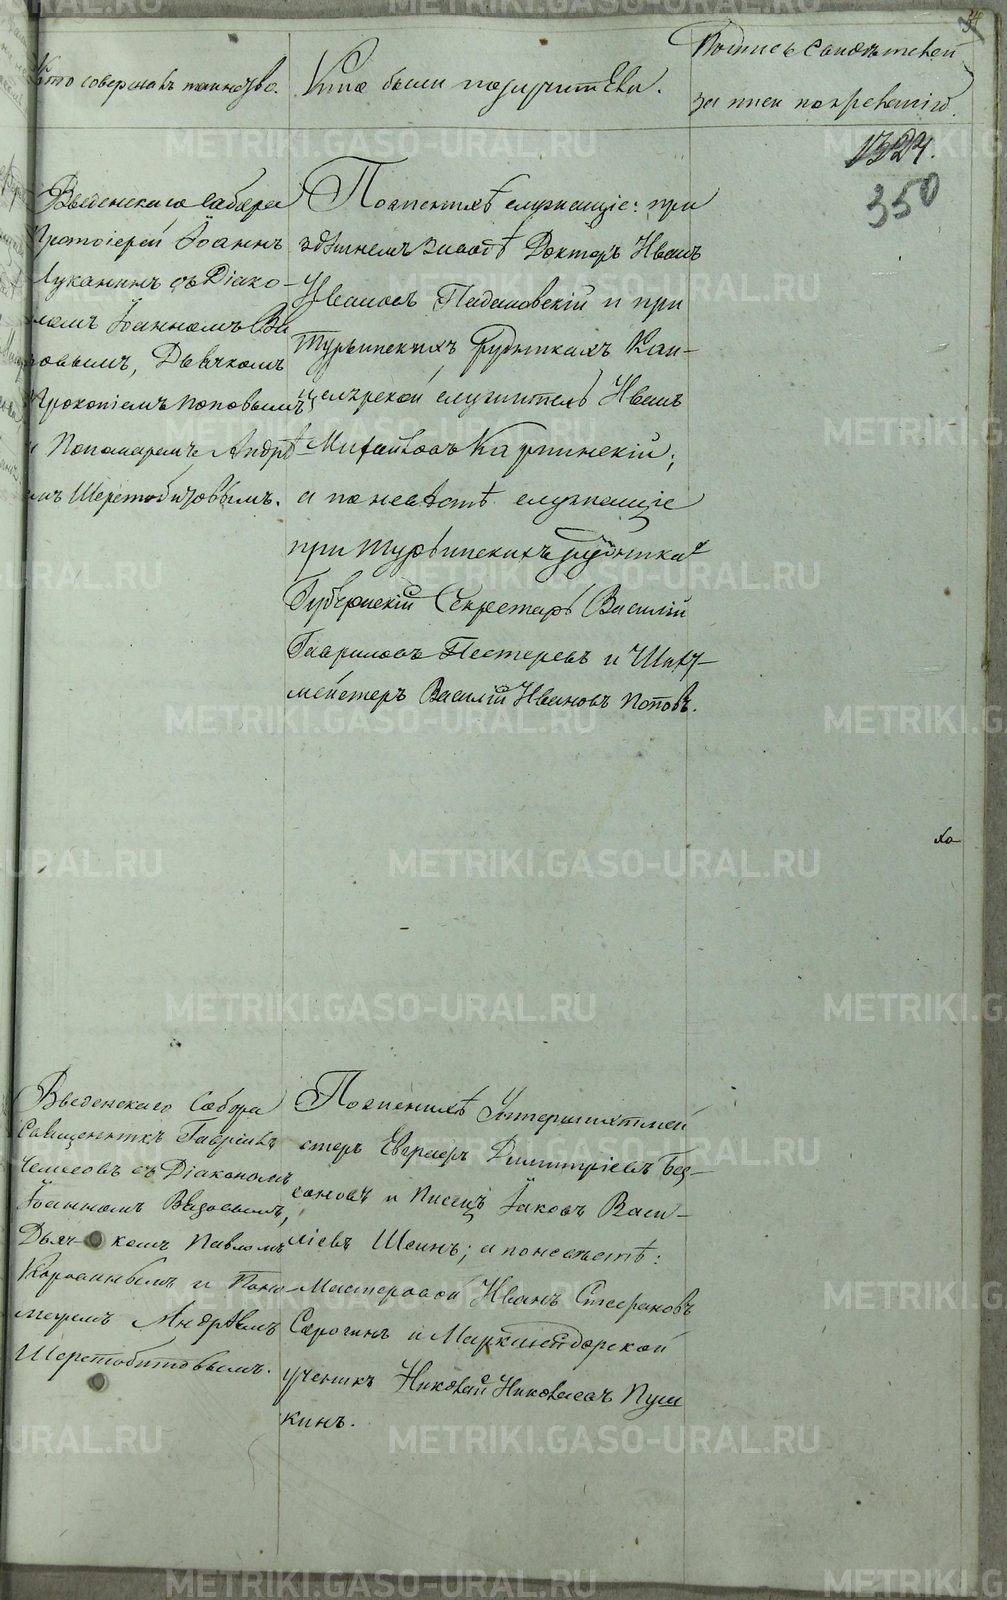 Кто совершалъ таинство.
Кто были поручители.
Подпись свидѣтелей
за ниси по креванію.
1324.
350
Введенскаго Собора
Протоіерей Іоаннъ
Луканинъ съ Діако-
номъ Іоанномъ Ви
довымъ, Дьячкомъ
Прокопіемъ Поповымъ,
и Пономаремъ Андрѣ
емъ Шеретобитовымъ.
По женихѣ служащіе: при
здѣшнемъ заводѣ Докторъ Иванъ
Ивановъ Падаловскій и при
Турьинскихъ Рудникахъ Кан-
целярской служитель Иванъ
Михайловъ Карпинскій;
а по невѣстѣ служащіе
при Турьинскихъ рудника
Губернскій Секретарь Василій
Гавриловъ Пестеревъ и Шихт-
мейстеръ Василій Ивановъ Поповъ.
Введенскаго Собора
Священникъ Гавріилъ
съ Діакономъ
Іоанномъ Видовымъ,
Дьячкомъ Павломъ
Коровинымъ и Поно
маремъ Андрѣемъ
Шеретобитовымъ.
По женихѣ Унтершихтмей
стеръ Евграфъ Димитріевъ Бес-
соновъ и Писецъ Іаковъ Васи-
ліевъ Шеинъ; а по невѣстѣ:
Мастеровой Иванъ Стефановъ
Сорогинъ и Маркшейдерской
ученикъ Николай Николаевъ Пуш
кинъ.
METRIKI.GASO-URAL.RU